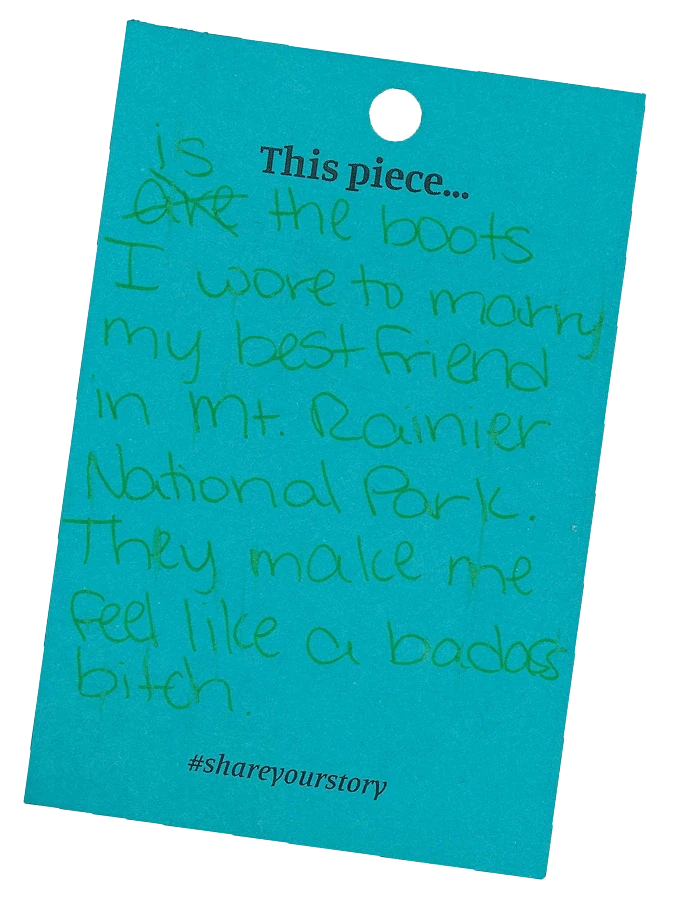 This piece...
is
are the boots
I wore to marry
my best friend
in Mt. Rainier
National Park.
They make me
feel like a badass
bitch.
#shareyourstory